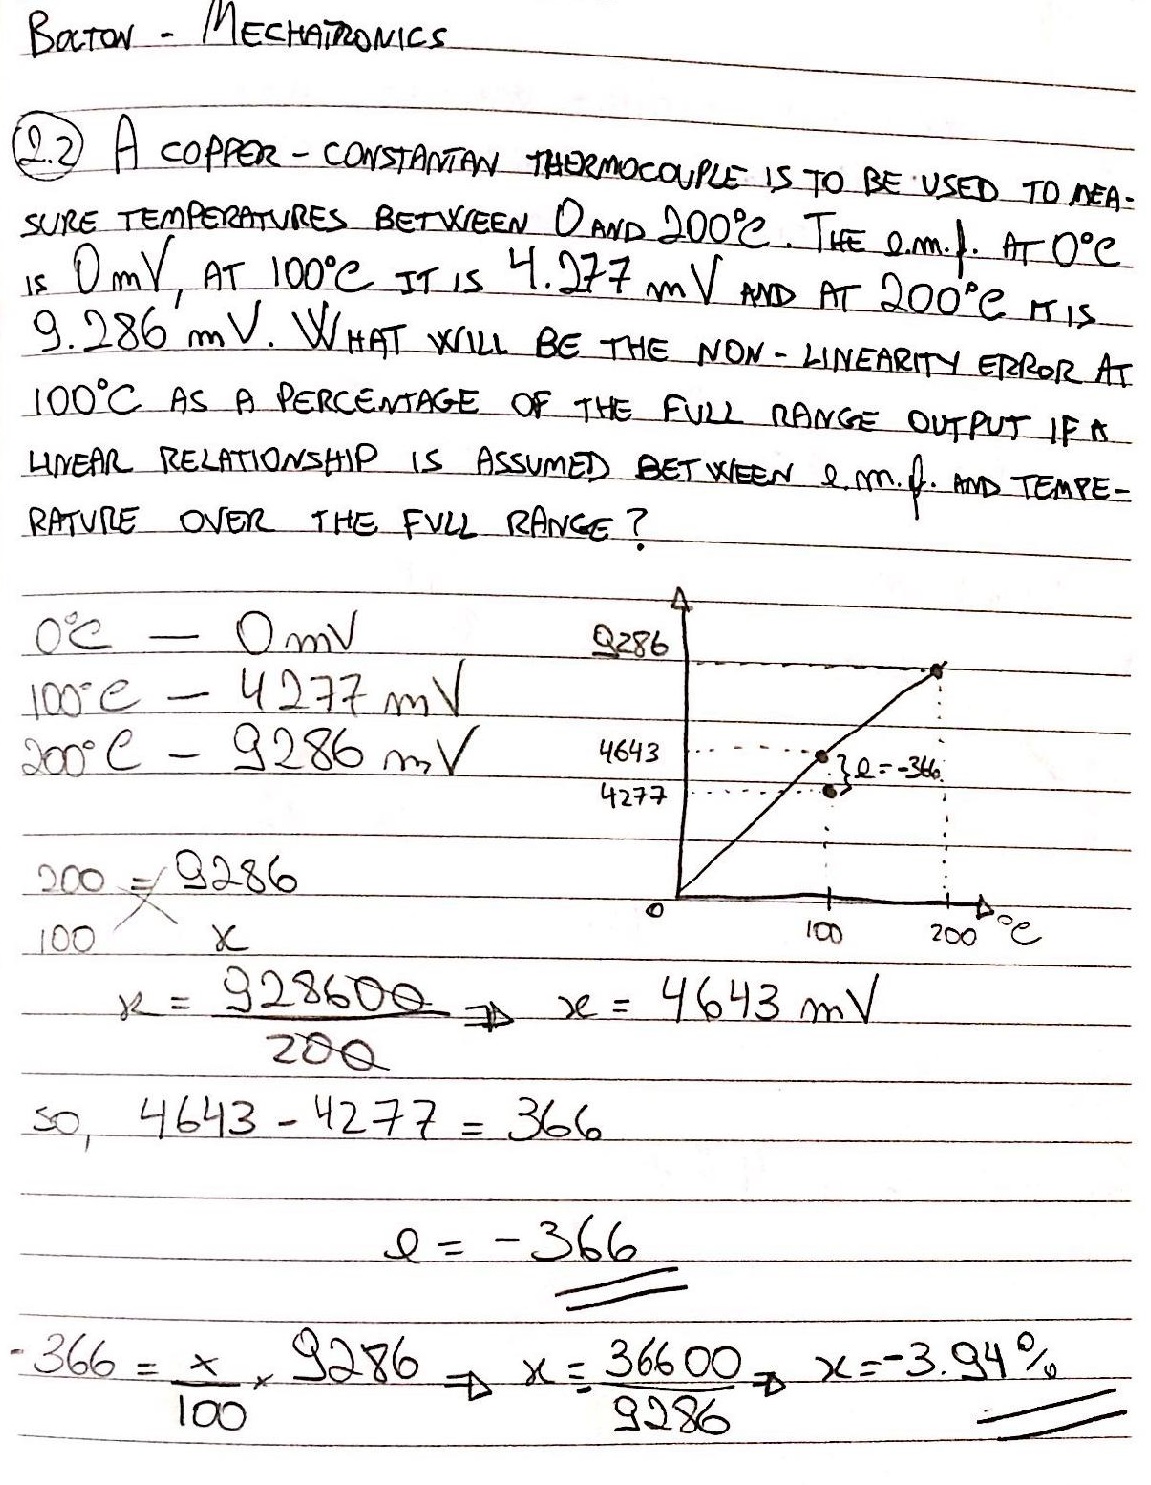 BOLTON - MECHATRONICS
2.2 A COPPER-CONSTANTAN THERMOCOUPLE IS TO BE USED TO MEA-
SURE TEMPERATURES BETWEEN 0 AND 200°C. THE e.m.f. AT 0°C
IS 0mV, AT 100°C IT IS 4.277 mV AND AT 200°C IT IS
9.286 mV. WHAT WILL BE THE NON-LINEARITY ERROR AT
100°C AS A PERCENTAGE OF THE FULL RANGE OUTPUT IF A
LINEAR RELATIONSHIP IS ASSUMED BETWEEN e.m.f. AND TEMPE-
RATURE OVER THE FULL RANGE?
0°C — 0mV
100°C — 4277 mV
200°C — 9286 mV
9286
4643
4277
e = -366
0
100
200
°C
200 = 9286
100 x
x = 928600/200 ⇒ x = 4643 mV
SO, 4643 - 4277 = 366
e = -366
-366 = x/100 × 9286 ⇒ x = -36600/9286 ⇒ x = -3.94%